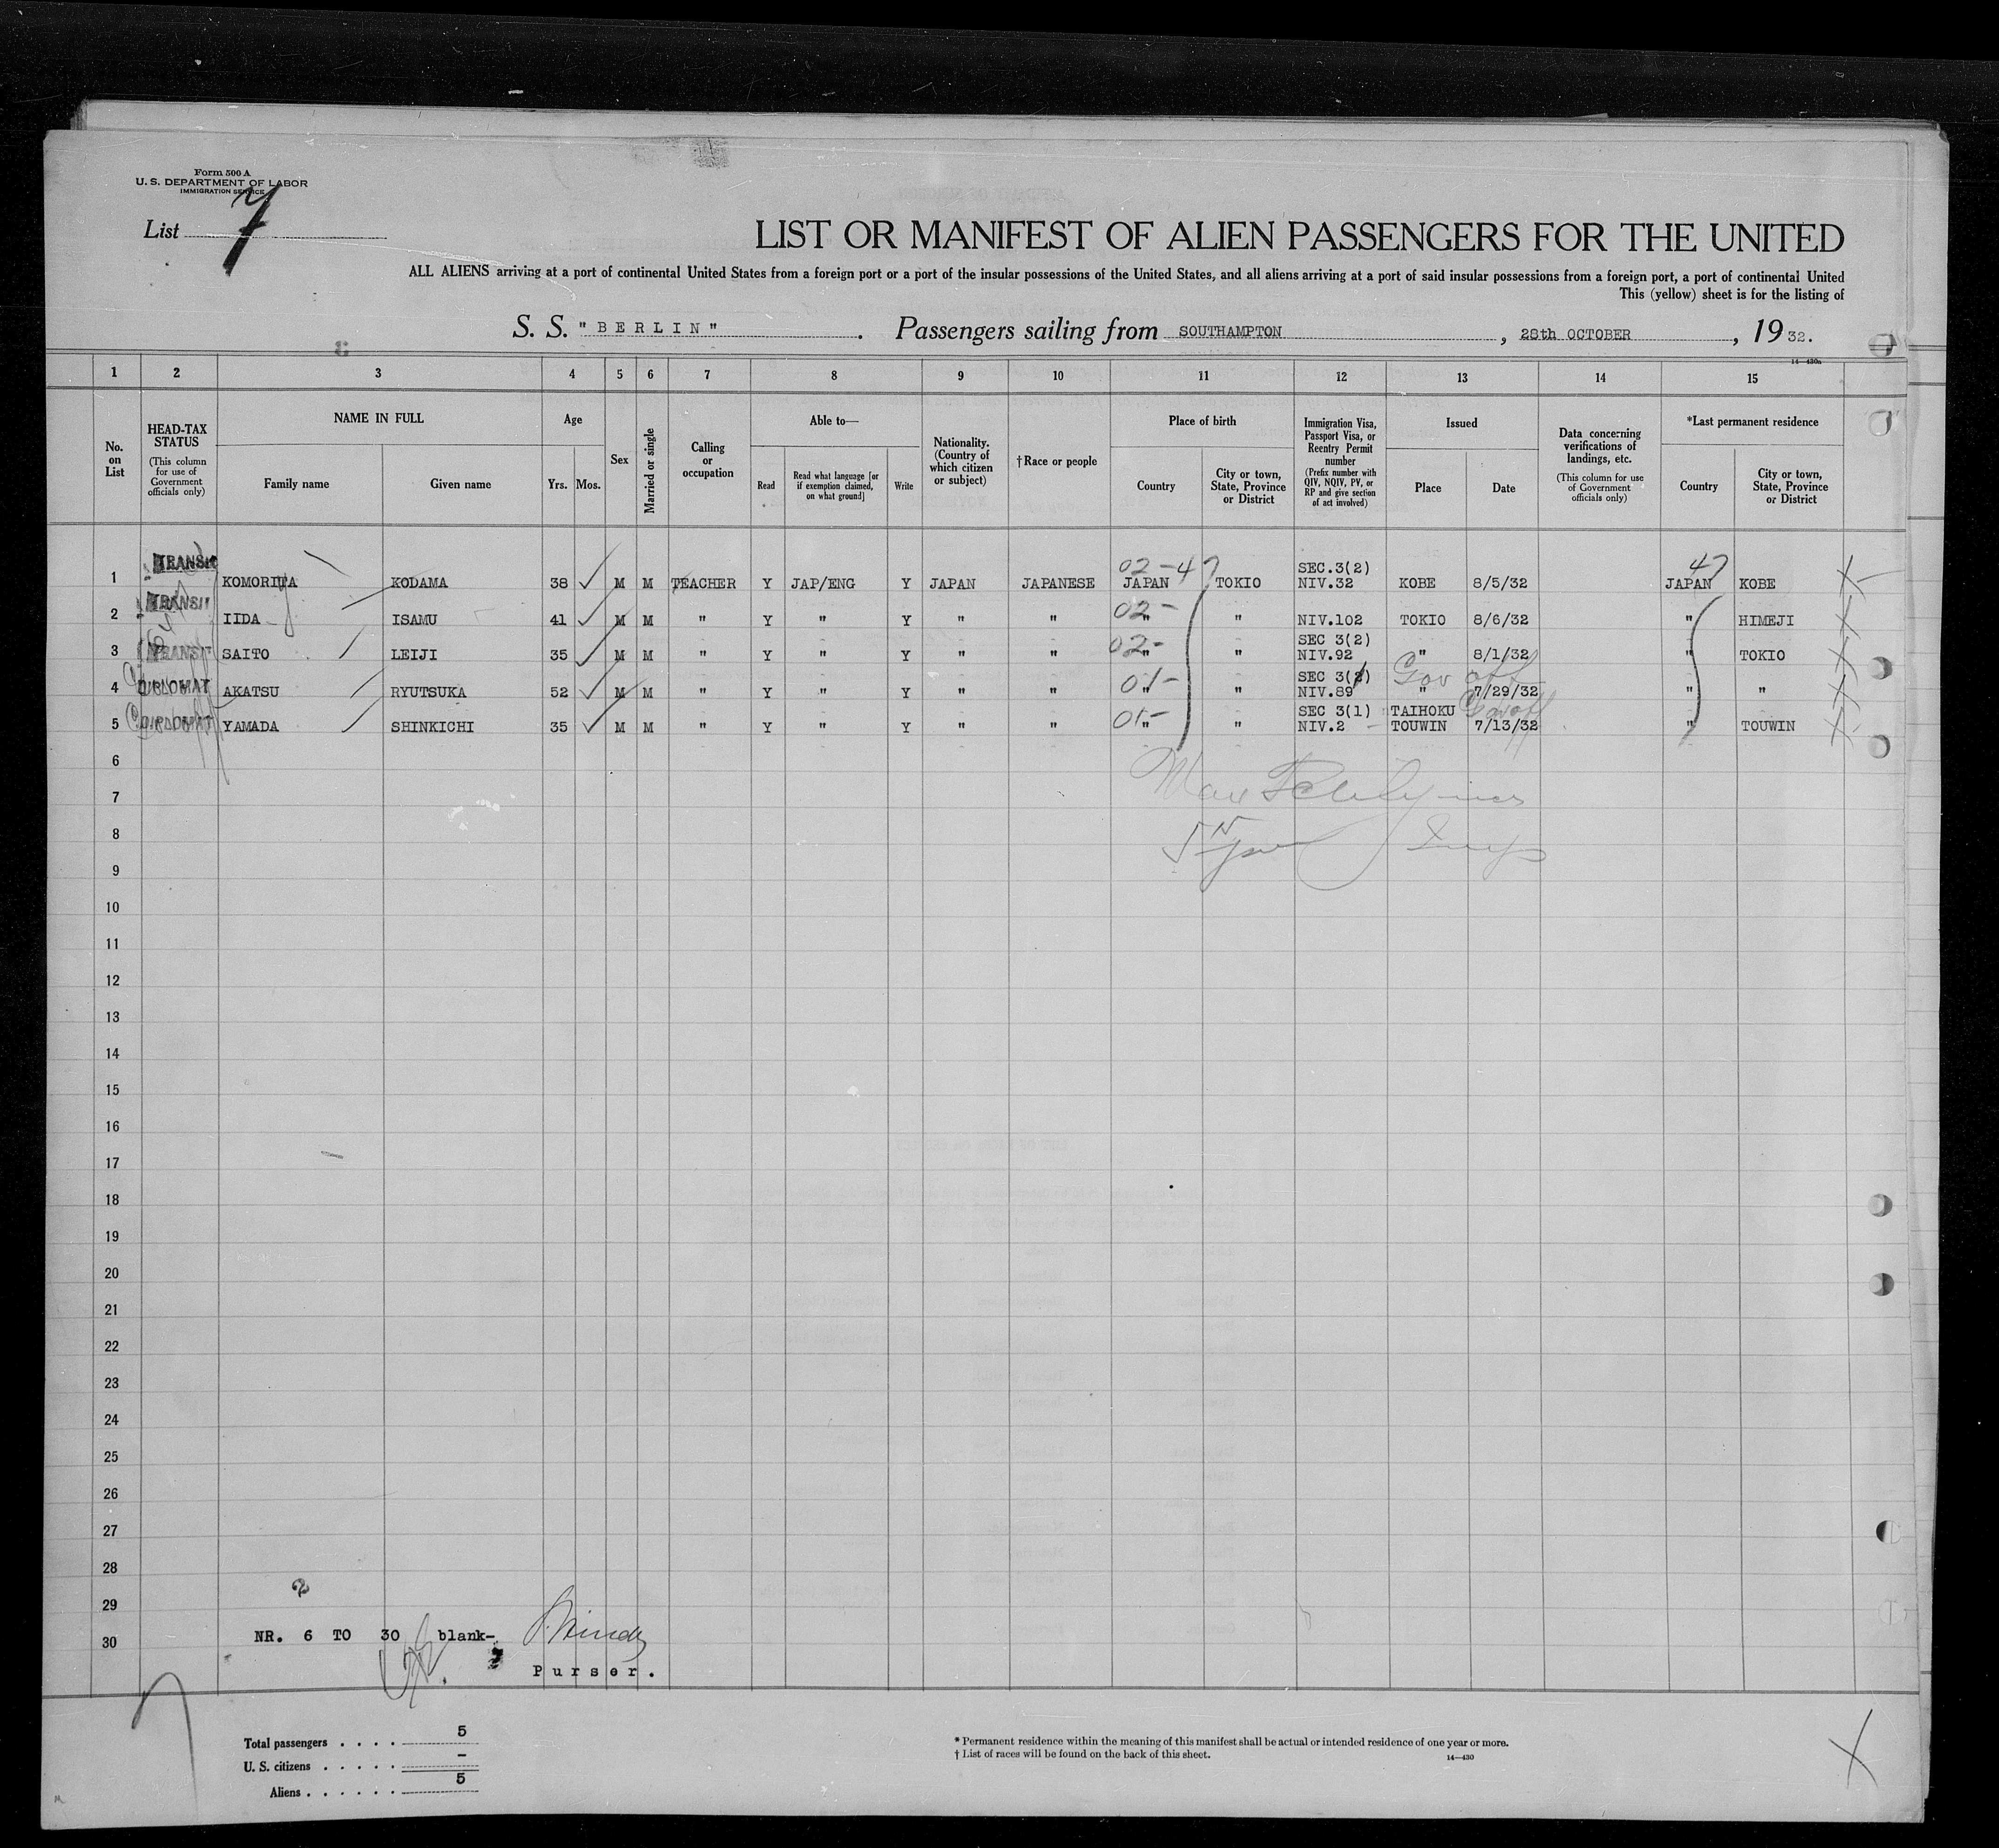 Form 500 A
U. S. DEPARTMENT OF LABOR
IMMIGRATION SERVICE
List 7
LIST OR MANIFEST OF ALIEN PASSENGERS FOR THE UNITED
ALL ALIENS arriving at a port of continental United States from a foreign port or a port of the insular possessions of the United States, and all aliens arriving at a port of said insular possessions from a foreign port, a port of continental United
This (yellow) sheet is for the listing of
S. S. "BERLIN" . Passengers sailing from SOUTHAMPTON , 28th OCTOBER , 19 32.
14—430a
1 2 3 4 5 6 7 8 9 10 11 12 13 14 15
No. on List
HEAD-TAX STATUS (This column for use of Government officials only)
NAME IN FULL
Family name Given name
Age
Yrs. Mos.
Sex
Married or single
Calling or occupation
Able to—
Read Read what language [or if exemption claimed, on what ground] Write
Nationality. (Country of which citizen or subject)
†Race or people
Place of birth
Country City or town, State, Province or District
Immigration Visa, Passport Visa, or Reentry Permit number (Prefix number with QIV, NQIV, PV, or RP and give section of act involved)
Issued
Place Date
Data concerning verifications of landings, etc. (This column for use of Government officials only)
*Last permanent residence
Country City or town, State, Province or District
TRANSIT 02-47 SEC.3(2) 47
1 KOMORITA KODAMA 38 M M TEACHER Y JAP/ENG Y JAPAN JAPANESE JAPAN TOKIO NIV.32 KOBE 8/5/32 JAPAN KOBE
TRANSIT 02-
2 IIDA ISAMU 41 M M " Y " Y " " " " NIV.102 TOKIO 8/6/32 " HIMEJI
02- SEC 3(2)
3 TRANSIT SAITO LEIJI 35 M M " Y " Y " " " " NIV.92 " 8/1/32 " TOKIO
01- SEC 3(2) Gov off
4 DIPLOMAT AKATSU RYUTSUKA 52 M M " Y " Y " " " " NIV.89 " 7/29/32 " "
01- SEC 3(1) TAIHOKU Gov off
5 DIPLOMAT YAMADA SHINKICHI 35 M M " Y " Y " " " " NIV.2 TOUWIN 7/13/32 " TOUWIN
6
7
8
9
10
11
12
13
14
15
16
17
18
19
20
21
22
23
24
25
26
27
28
29
30 NR. 6 TO 30 blank-
Purser.
Total passengers . . . . 5
U. S. citizens . . . . . –
Aliens . . . . . . 5
* Permanent residence within the meaning of this manifest shall be actual or intended residence of one year or more.
† List of races will be found on the back of this sheet.
14—430